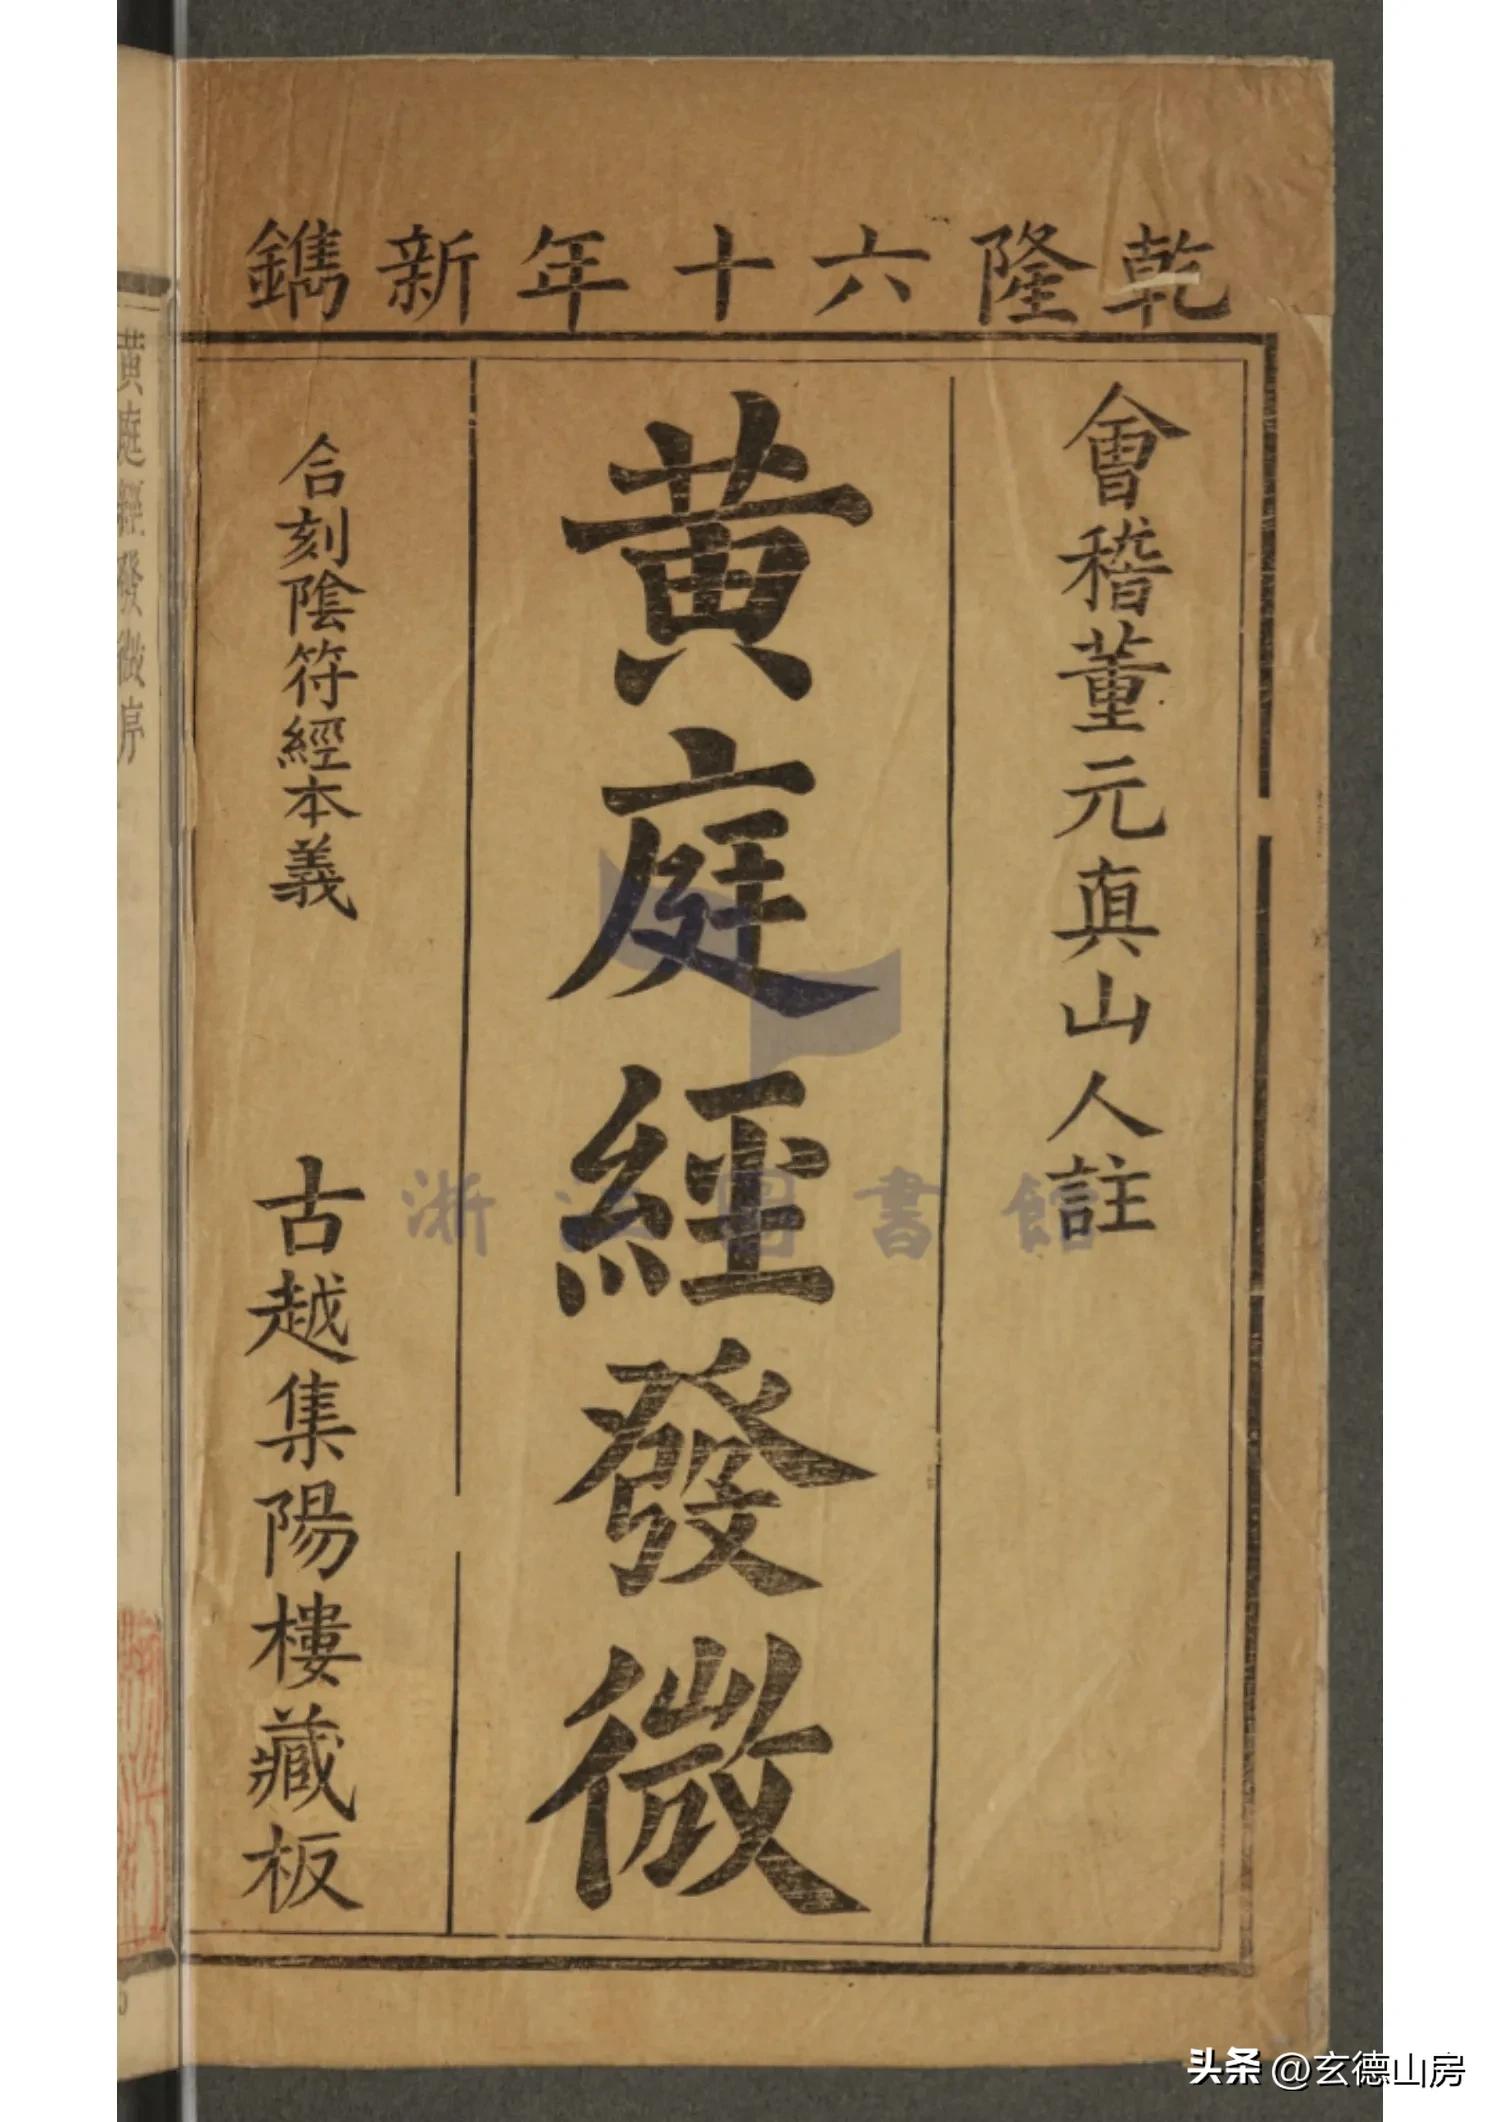 乾隆六十年新鐫
會稽董元真山人註
黃庭經發微
合刻陰符經本義
古越集陽樓藏板
黃庭經發微序
浙江圖書館
头条 @玄德山房